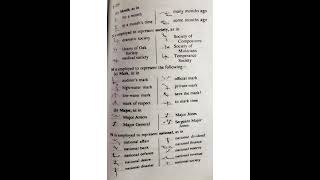 (c) Month, as in
in a month
many months ago
in a month's time
some months ago
is employed to represent society, as in
dramatic society
Society of Compositors
Hearts of Oak Society
Society of Musicians
medical society
Temperance Society
M is employed to represent the following—
(a) Mark, as in
auditor's mark
official mark
high-water mark
private mark
low-water mark
toe the mark!
mark of respect
to mark time
(b) Major, as in
Major Amos
Major Jones
Major General
Sergeant Major Jones
N is employed to represent national, as in
national affair
national dividend
national bank
national disaster
national defence
national finance
national dance
national revenue
national disaster
national society